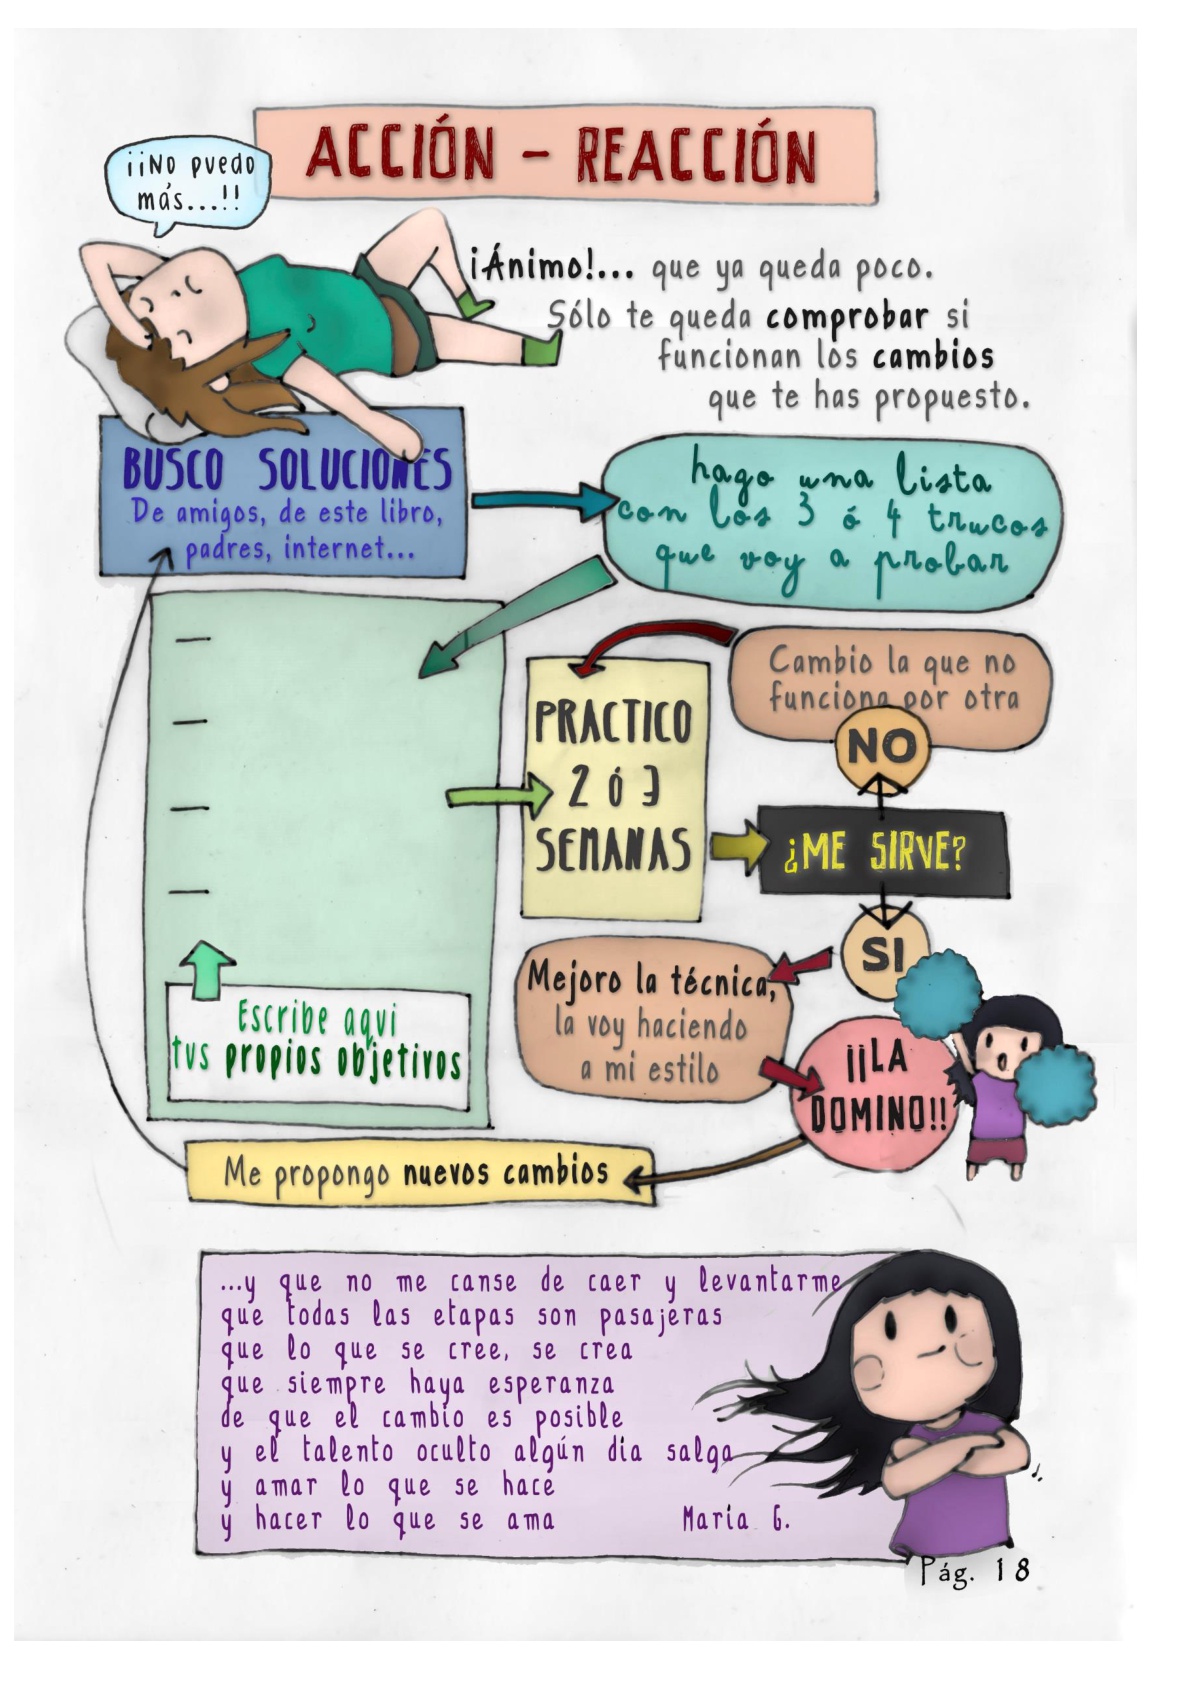 ACCIÓN - REACCIÓN
¡¡NO puedo
más...!!
¡Ánimo!... que ya queda poco.
Sólo te queda comprobar si
funcionan los cambios
que te has propuesto.
BUSCO SOLUCIONES
De amigos, de este libro,
padres, internet...
hago una lista
con los 3 ó 4 trucos
que voy a probar
Cambio la que no
funciona por otra
NO
PRACTICO
2 ó 3
SEMANAS
¿ME SIRVE?
SI
Mejoro la técnica,
la voy haciendo
a mi estilo
¡¡LA
DOMINO!!
Escribe aqui
tus propios objetivos
Me propongo nuevos cambios
...y que no me canse de caer y levantarme
que todas las etapas son pasajeras
que lo que se cree, se crea
que siempre haya esperanza
de que el cambio es posible
y el talento oculto algún dia salga
y amar lo que se hace
y hacer lo que se ama María G.
Pág. 18